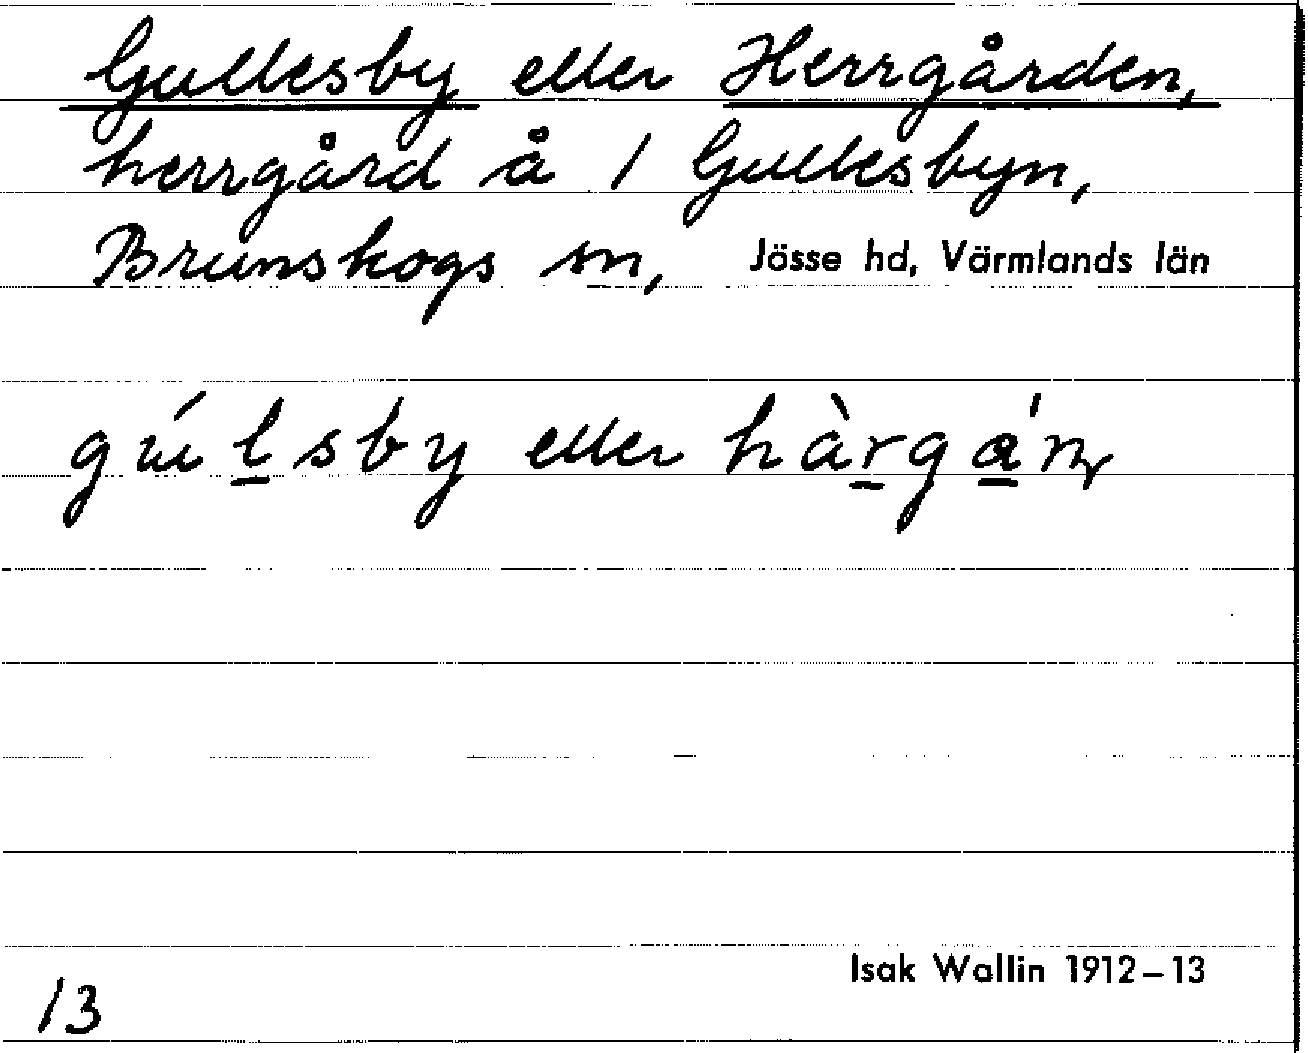 Gullesby eller Herrgården,
herrgård å 1 Gullesbyn,
Brunskogs sn, Jösse hd, Värmlands län
gúlsby eller hàrgán
Isak Wallin 1912–13
13